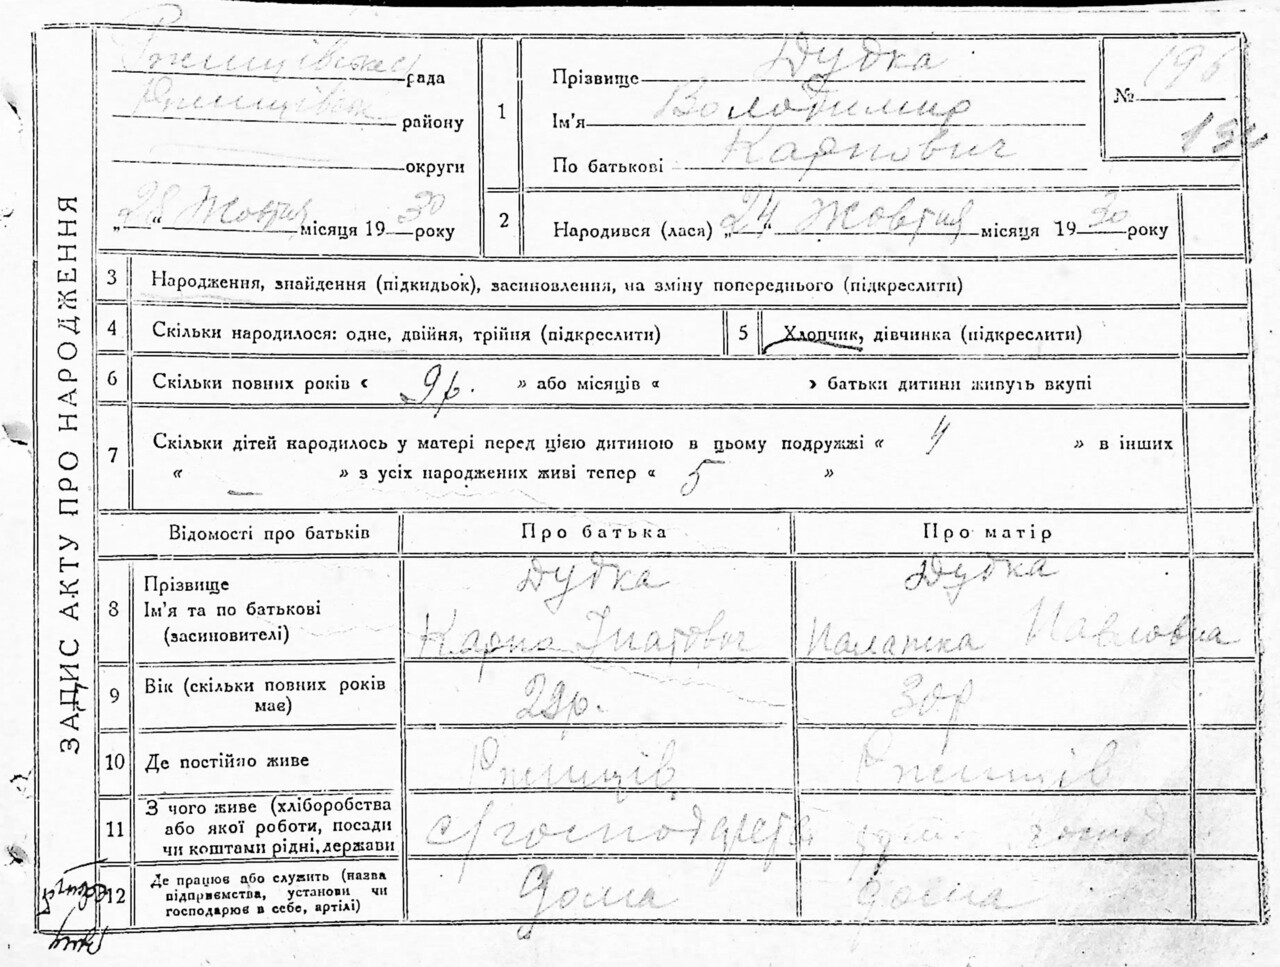 ЗАПИС АКТУ ПРО НАРОДЖЕННЯ
Ржищівська рада
Ржищівськ району
округи
„28“ Жовтня місяця 1930 року
1
Прізвище Дудка
Ім'я Володимир
По батькові Карпович
№ 196
134
2
Народився (лася) „24“ Жовтня місяця 1930 року
3 Народження, знайдення (підкидьок), засиновлення, на зміну попереднього (підкреслити)
4 Скільки народилося: одне, двійня, трійня (підкреслити)
5 Хлопчик, дівчинка (підкреслити)
6 Скільки повних років « 9р. » або місяців « » батьки дитини живуть вкупі
7 Скільки дітей народилось у матері перед цією дитиною в цьому подружжі « 4 » в інших
« — » з усіх народжених живі тепер « 5 »
Відомості про батьків Про батька Про матір
8 Прізвище
Ім'я та по батькові
(засиновителі)
Дудка
Карпо Ігнатович
Дудка
Палажка Павловна
9 Вік (скільки повних років
має)
29р.
30р
10 Де постійно живе Ржищів Ржищів
11 З чого живе (хліборобства
або якої роботи, посади
чи коштами рідні, держави
с/господарста
господ
12 Де працює або служить (назва
підприємства, установи чи
господарює в себе, артілі)
Дома
дома